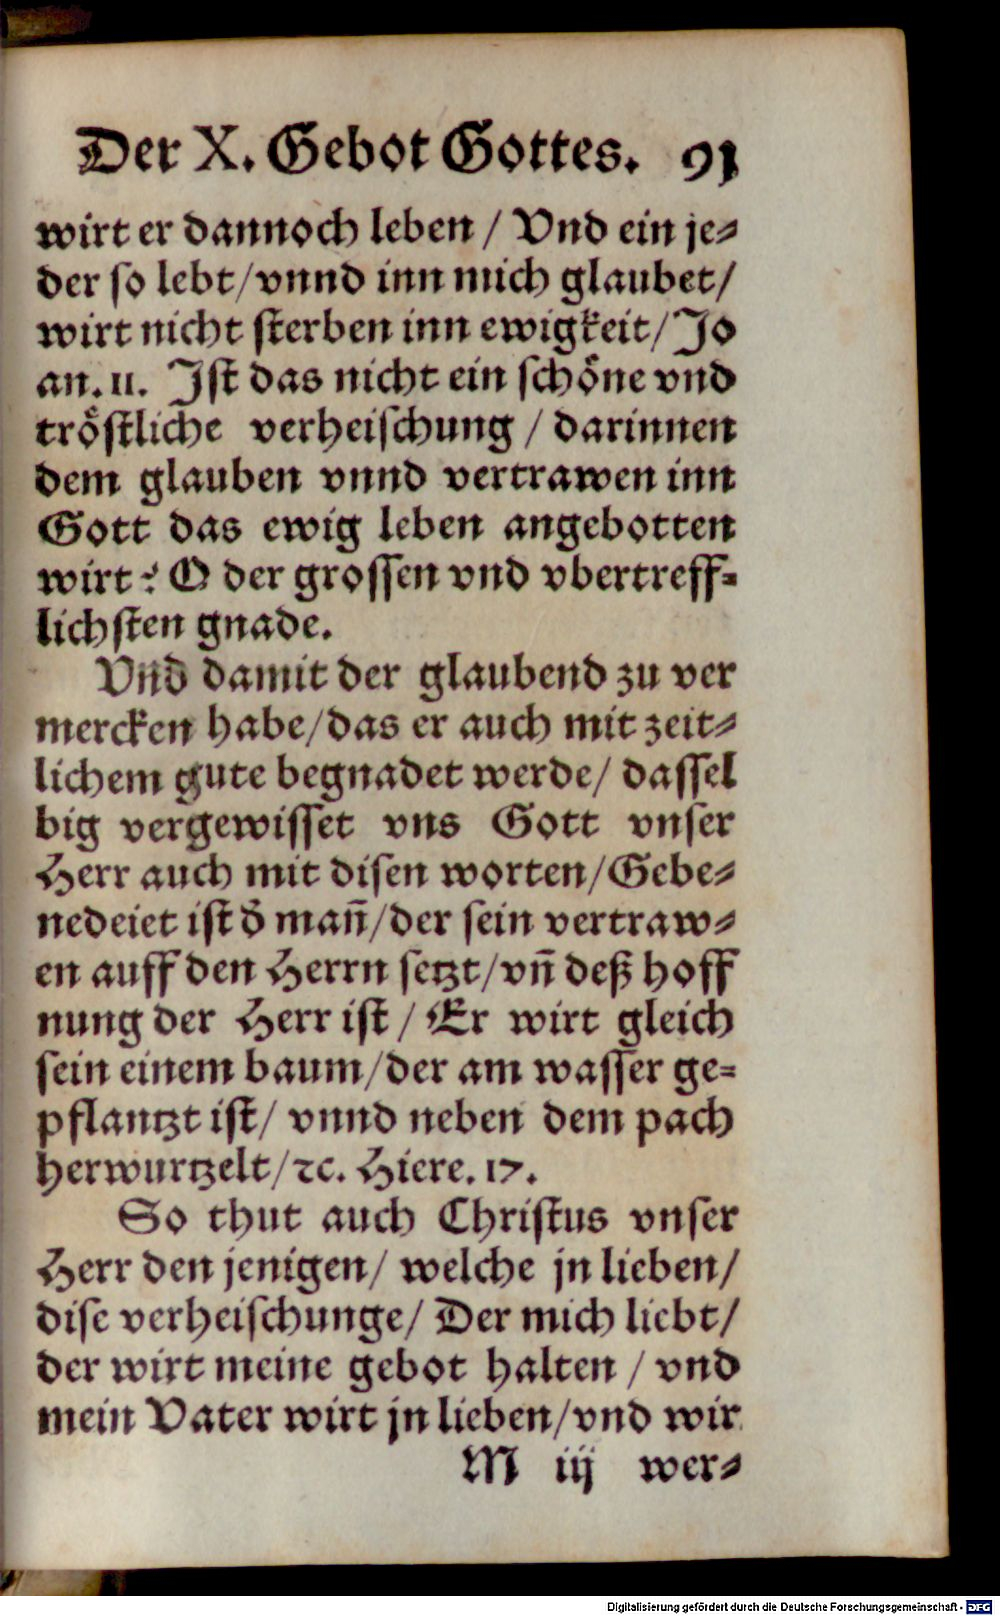 Der X. Gebot Gottes. 91
wirt er dannoch leben / Vnd ein je-
der so lebt/vnnd inn mich glaubet/
wirt nicht sterben inn ewigkeit/ Jo
an. 11. Jst das nicht ein schöne vnd
tröstliche verheischung / darinnen
dem glauben vnnd vertrawen inn
Gott das ewig leben angebotten
wirt? O der grossen vnd vbertreff-
lichsten gnade.
Vn̄d damit der glaubend zu ver
mercken habe/das er auch mit zeit-
lichem gute begnadet werde/ dassel
big vergewisset vns Gott vnser
Herr auch mit disen worten/Gebe-
nedeiet ist d̕ man̄/der sein vertraw-
en auff den Herrn setzt/vn̄ deß hoff
nung der Herr ist / Er wirt gleich
sein einem baum/der am wasser ge-
pflantzt ist/ vnnd neben dem pach
herwurtzelt/ꝛc. Hiere. 17.
So thut auch Christus vnser
Herr den jenigen/ welche jn lieben/
dise verheischunge/ Der mich liebt/
der wirt meine gebot halten / vnd
mein Vater wirt jn lieben/vnd wir
M iij wer-
Digitalisierung gefördert durch die Deutsche Forschungsgemeinschaft - DFG